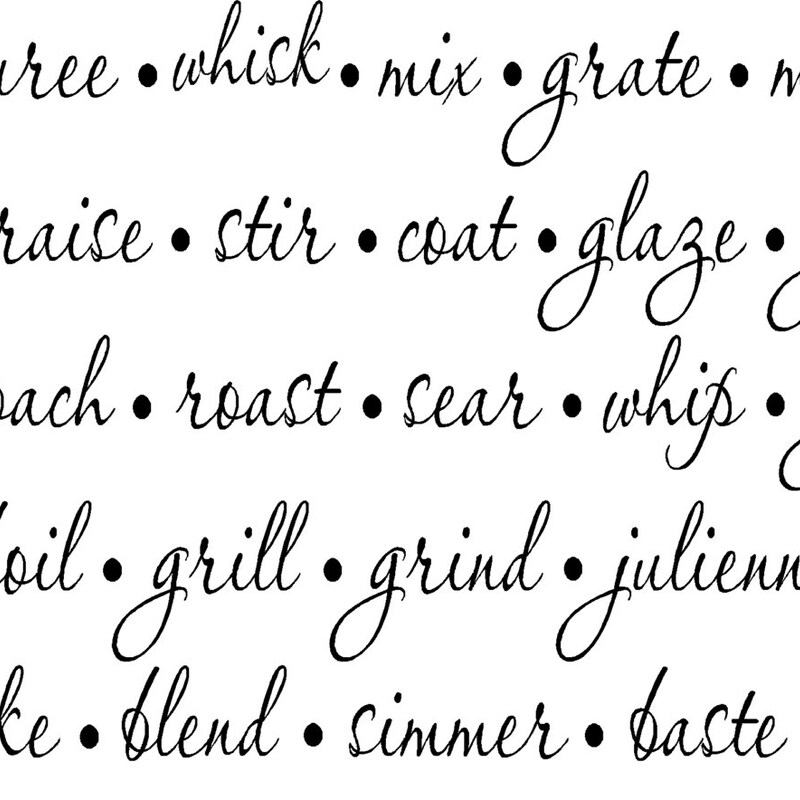 uree • whisk • mix • grate • m
raise • stir • coat • glaze •
oach • roast • sear • whip •
oil • grill • grind • julienn
ke • blend • simmer • baste